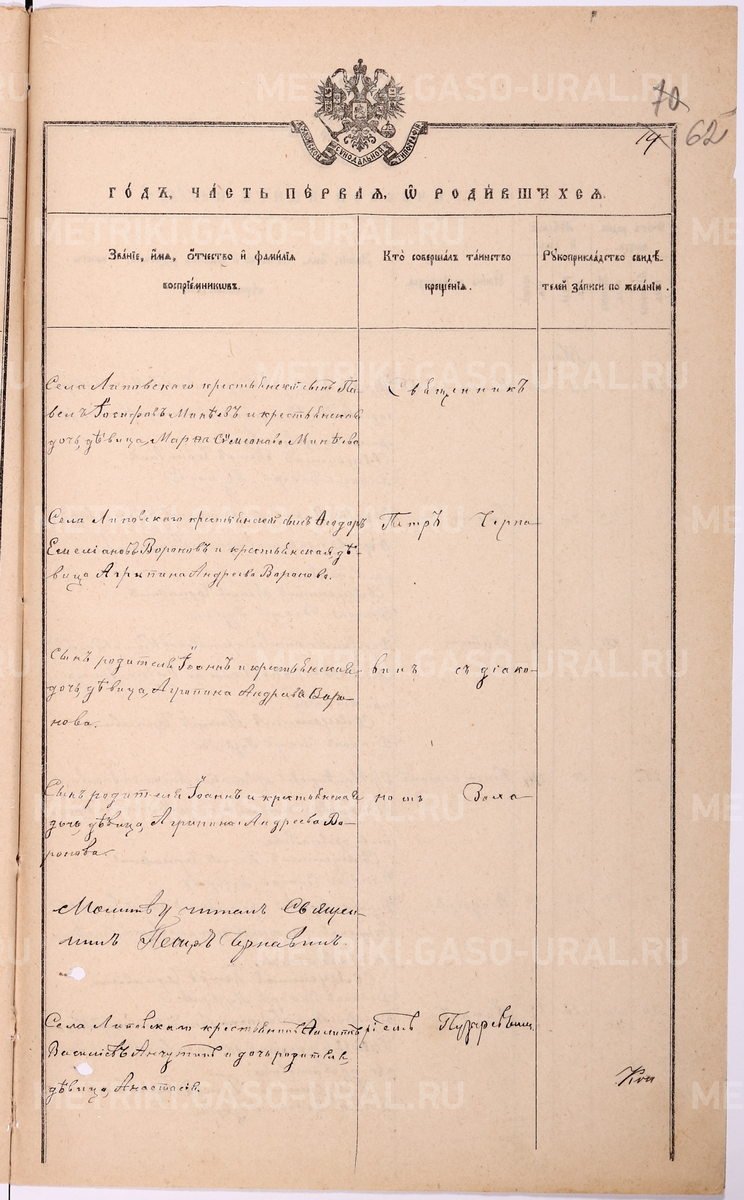 70
14 62
МОСКОВСКОЙ СѴНОДАЛЬНОЙ ТИПОГРАФІИ
ГОДЪ, ЧАСТЬ ПЕРВАЯ, Ѡ РОДИВШИХСЯ.
Званіе, имя, отчество и фамилія воспріемниковъ.
Кто совершалъ таинство крещенія.
Рукоприкладство свидѣтелей записи по желанію.
Села Липовскаго крестьянскій сынъ Па-
велъ Іосифовъ Минѣевъ и крестьянская
дочь, дѣвица, Марѳа Сѵмеонова Минѣева
Священникъ
Села Липовскаго крестьянскій сынъ Ѳеодоръ
Емеліановъ Вороновъ и крестьянская дѣ-
вица Агрипина Андреева Воронова.
Петръ Черна-
Сынъ родителя Іоаннъ и крестьянская
дочь, дѣвица, Агрипина Андреева Воро-
нова.
винъ съ діако-
Сынъ родителя Іоаннъ и крестьянская
дочь, дѣвица, Агрипина Андреева Во-
ронова.
номъ
Молитву читалъ Священ-
никъ Петръ Чернавинъ.
Села Липовскаго крестьянинъ
Василіевъ и дочь родителя,
дѣвица, Анастасія.
METRIKI.GASO-URAL.RU